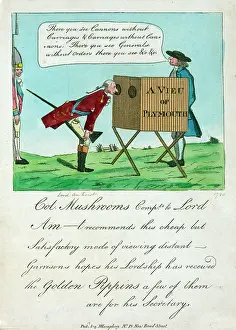 There you see Cannons without
Carriages & Carriages without Can-
-nons. There you see Generals
without orders there you see &c &c.
A VIEW
OF
PLYMOUTH
Col. Mushrooms Compts. to Lord
Am—t recommends this cheap but
Satisfactory mode of viewing distant
Garrisons hopes his Lordship has received
the Golden Pippins a few of them
are for his Secretary.